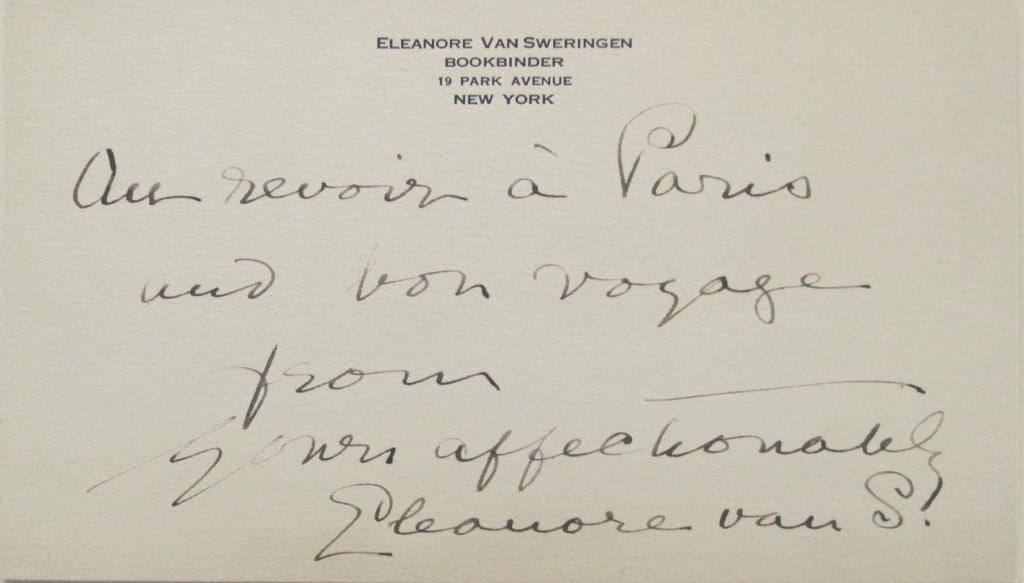 ELEANORE VAN SWERINGEN
BOOKBINDER
19 PARK AVENUE
NEW YORK
Au revoir à Paris
and bon voyage
from
Yours affectionately
Eleanore van S!